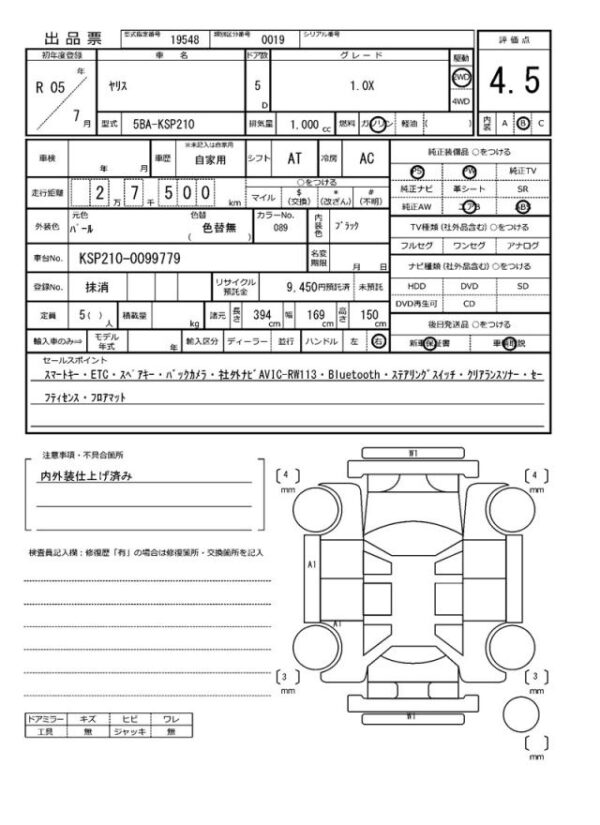 出品票 型式指定番号 19548 類別区分番号 0019 シリアル番号
評価点
4.5
内装 A B C
初年度登録 車名 ドア数 グレード 駆動
R 05 年 7 月 ヤリス 5 D 1.0X 2WD 4WD
型式 5BA-KSP210 排気量 1,000 cc 燃料 ガソリン 軽油 ( )
車検 年 月 車歴 ※未記入は自家用 自家用 シフト AT 冷房 AC
走行距離 2 万 7 千 5 0 0 km
○をつける
マイル $ (交換) * (改ざん) # (不明)
外装色 元色 パール 色替 色替無 ( ) カラーNo. 089 内装色 ブラック
車台No. KSP210-0099779 名変期限 月 日
登録No. 抹消 リサイクル預託金 9,450円預託済 未預託
定員 5( ) 人 積載量 kg 諸元 長さ 394 cm 幅 169 cm 高さ 150 cm
輸入車のみ⇒ モデル年式 年 輸入区分 ディーラー 並行 ハンドル 左 右
純正装備品 ○をつける
PS PW 純正TV
純正ナビ 革シート SR
純正AW エアB ABS
TV種類(社外品含む) ○をつける
フルセグ ワンセグ アナログ
ナビ種類(社外品含む) ○をつける
HDD DVD SD
DVD再生可 CD
後日発送品 ○をつける
新車保証書 車輌取説
セールスポイント
スマートキー・ETC・スペアキー・バックカメラ・社外ナビAVIC-RW113・Bluetooth・ステアリングスイッチ・クリアランスソナー・セー
フティセンス・フロアマット
注意事項・不具合箇所
内外装仕上げ済み
検査員記入欄：修復歴「有」の場合は修復箇所・交換箇所を記入
ドアミラー キズ ヒビ ワレ
工具 無 ジャッキ 無
W1
4 mm
4 mm
A1
A1
3 mm
3 mm
W1
mm